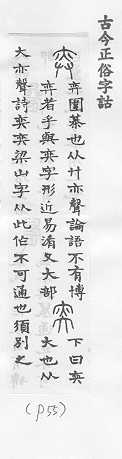 古今正俗字詁
弈 弈圍棊也从廾亦聲論語不有博
弈者乎與奕字形近易淆又大部
奕 下曰奕
大也从
大亦聲詩奕奕梁山字从此作不可通也須別之
(P55)